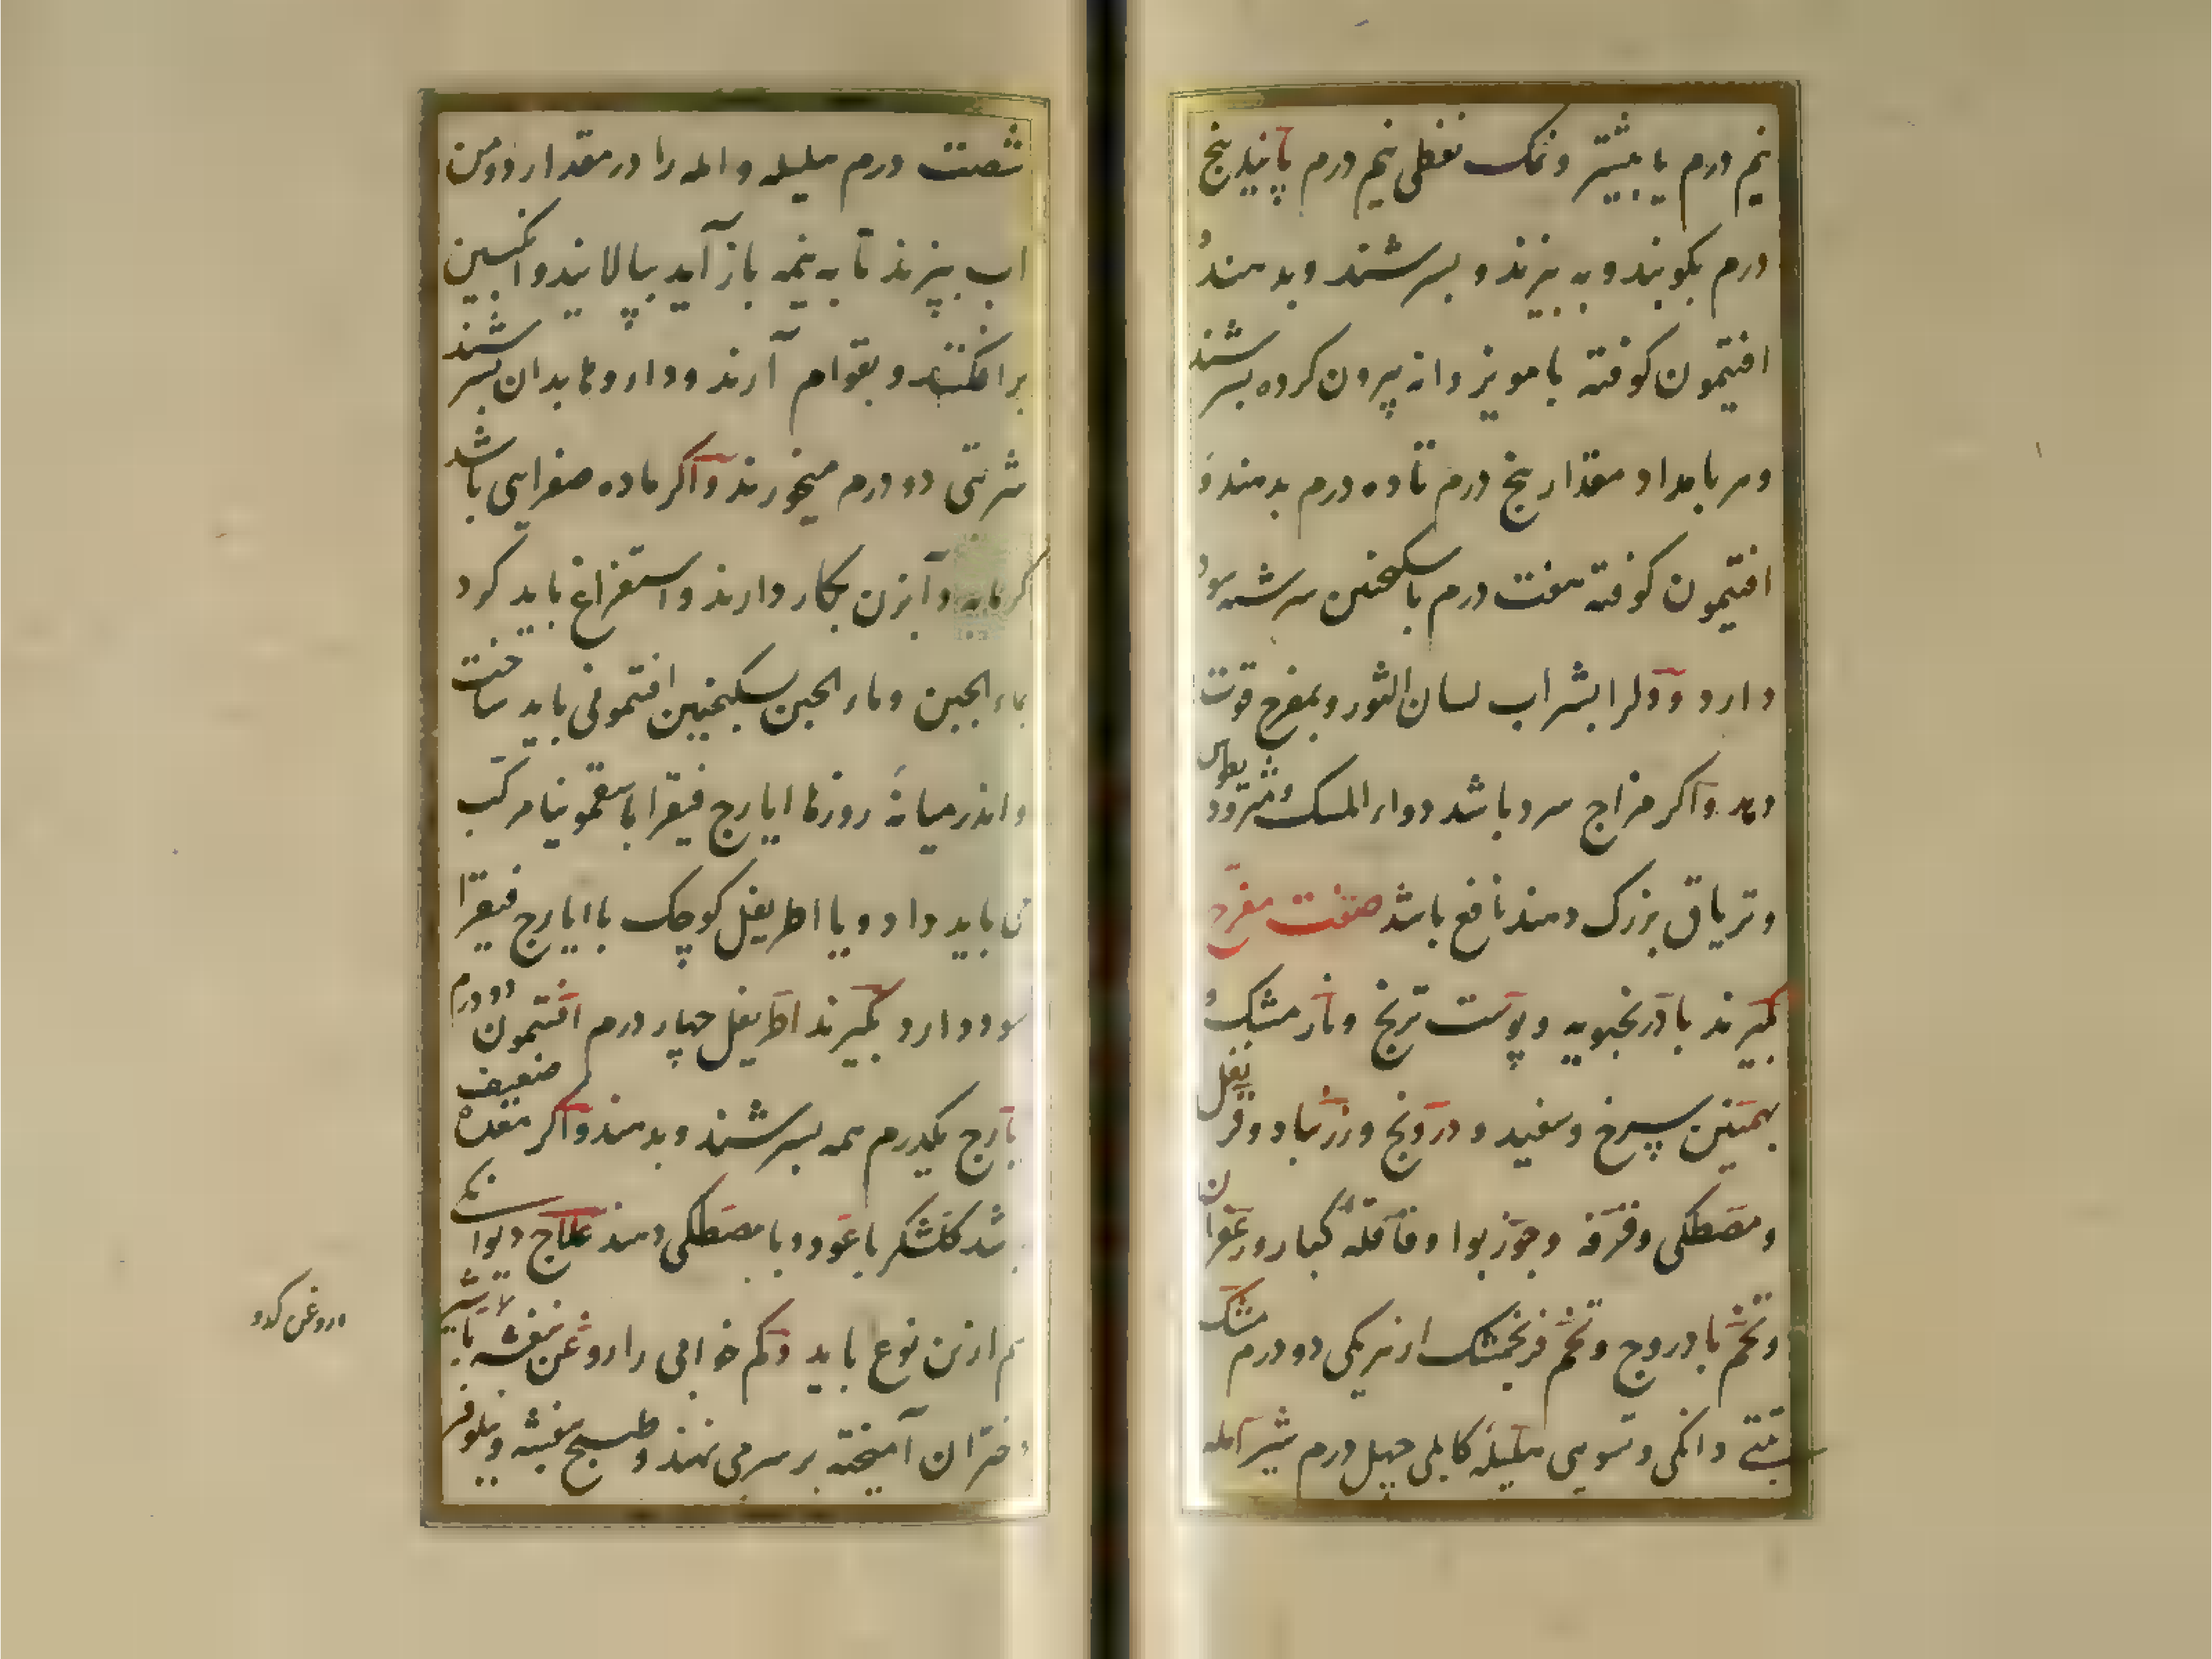 نیم درم یا بیشتر و نمک نفطی نیم درم پانید پنج
درم بکوبند و به بیزند و بسرشند و بدهند و
افتیمون کوفته با مویز دانه بیرون کرده بسرشند
و هر بامداد مقدار پنج درم تا ده درم بدهند و
افتیمون کوفته هفت درم با سکنجبین سرشته سود
دارد و دلرا بشراب لسان الثور و بمفرح قوت
دهد و اکر مزاج سرد باشد دواء المسک و مثرودیطوس
و تریاق بزرک دهند نافع باشد صفت مفرح
بکیرند بادرنجبویه و پوست ترنج و نارمشک و
بهمنین سرخ و سفید و درونج و زرنباد و قرنفل
و مصطکی و قرفه و جوزبوا و قاقلهٔ کبار و زعفران
و تخم بادروج و تخم فرنجمشک از هریکی دو درم مشک
تبتی دانکی و تسویی هلیلهٔ کابلی چهل درم شیر آمله
شصت درم هلیله و امله را در مقدار دو من
اب بپزند تا به نیمه باز آید بپالایند و انکبین
برافکنند و بقوام آرند و داروها بدان بسرشند
شربتی دو درم میخورند و اکر ماده صفرایی باشد
کرمابه و آبزن بکار دارند و استفراغ باید کرد
بماء الجبن و ماء الجبن سکنجبین افتمونی باید ساخت
و اندر میانهٔ روزها ایارج فیقرا با سقمونیا مرکب
باید داد و یا اطریفل کوچک با ایارج فیقرا
سود دارد بکیرند اطریفل چهار درم افتیمون دو درم
یارج یکدرم همه بسرشند و بدهند و اکر معده ضعیف
باشد کلشکر با عود و با مصطکی دهند علاج دیوانکی
هم ازین نوع باید و کم خوابی را روغن بنفشه با شیر
دختران آمیخته بر سر می نهند و طبیخ بنفشه و نیلوفر
و روغن کدو